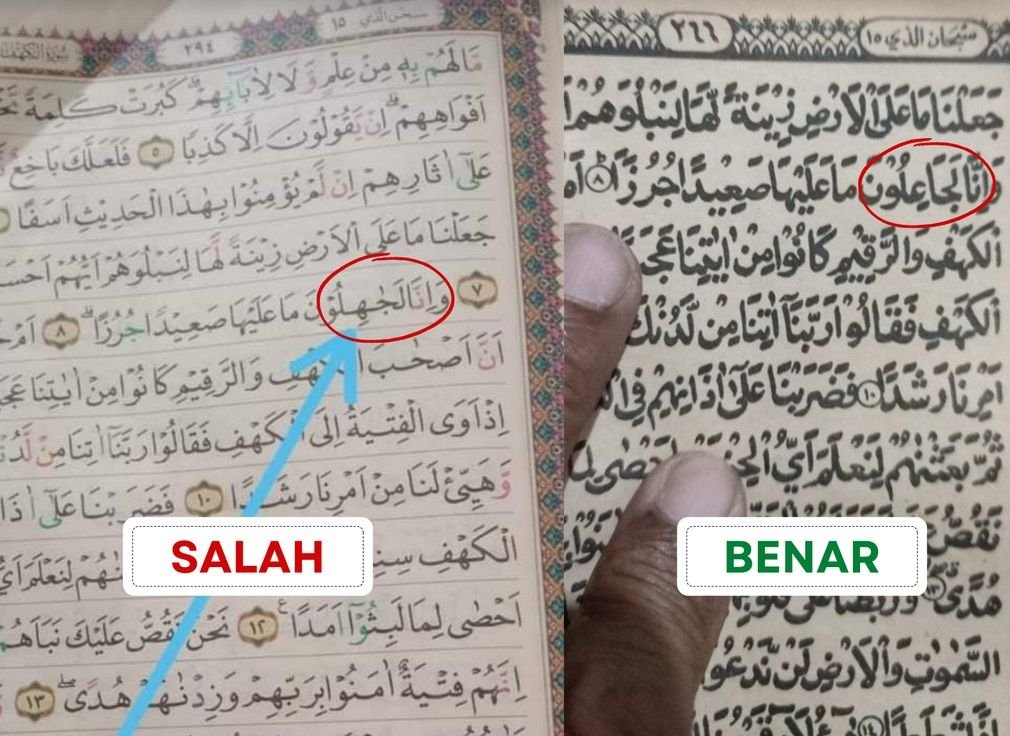 سبحن الذي ١٥
٢٩٤
مَالَهُمْ بِهٖ مِنْ عِلْمٍ وَّلَا لِاٰبَاۤىِٕهِمْۗ كَبُرَتْ كَلِمَةً
اَفْوَاهِهِمْۗ اِنْ يَّقُوْلُوْنَ اِلَّا كَذِبًا ٥ فَلَعَلَّكَ بَاخِعٌ
عَلٰٓى اٰثَارِهِمْ اِنْ لَّمْ يُؤْمِنُوْا بِهٰذَا الْحَدِيْثِ اَسَفًا
جَعَلْنَا مَا عَلَى الْاَرْضِ زِيْنَةً لَّهَا لِنَبْلُوَهُمْ اَيُّهُمْ اَحْسَ
٧ وَاِنَّا لَجٰهِلُوْنَ مَا عَلَيْهَا صَعِيْدًا جُرُزًاۗ ٨ اَمْ
اَنَّ اَصْحٰبَ الْكَهْفِ وَالرَّقِيْمِ كَانُوْا مِنْ اٰيٰتِنَا عَجَ
اِذْ اَوَى الْفِتْيَةُ اِلَى الْكَهْفِ فَقَالُوْا رَبَّنَآ اٰتِنَا مِنْ لَّدُ
وَّهَيِّئْ لَنَا مِنْ اَمْرِنَا رَشَدًا ١٠ فَضَرَبْنَا عَلٰٓى اٰذَا
الْكَهْفِ سِنِ هُمْ لِنَعْلَمَ اَيُّ
اَحْصٰى لِمَا لَبِثُوْٓا اَمَدًا ١٢ نَحْنُ نَقُصُّ عَلَيْكَ نَبَاَهُمْ
اِنَّهُمْ فِتْيَةٌ اٰمَنُوْا بِرَبِّهِمْ وَزِدْنٰهُمْ هُدًىۖ ١٣
SALAH
سبحان الذي ١٥
٢٦٦
جَعَلْنَا مَا عَلَى الْاَرْضِ زِيْنَةً لَّهَا لِنَبْلُوَهُمْ
وَاِنَّا لَجَاعِلُوْنَ مَا عَلَيْهَا صَعِيْدًا جُرُزًا ٨
الْكَهْفِ وَالرَّقِيْمِ كَانُوْا مِنْ اٰيٰتِنَا عَجَبً
الْكَهْفِ فَقَالُوْا رَبَّنَآ اٰتِنَا مِنْ لَّدُنْكَ
اَمْرِنَا رَشَدًا ١٠ فَضَرَبْنَا عَلٰٓى اٰذَانِهِمْ فِى
ثُمَّ بَعَثْنٰهُمْ لِنَعْلَمَ اَيُّ الْحِزْ اَحْصٰى لِ
نَقُصُّ
هُدًى وَرَبَطْنَا عَلٰى قُلُوْبِ
السَّمٰوٰتِ وَالْاَرْضِ لَنْ نَّدْعُوَ
BENAR